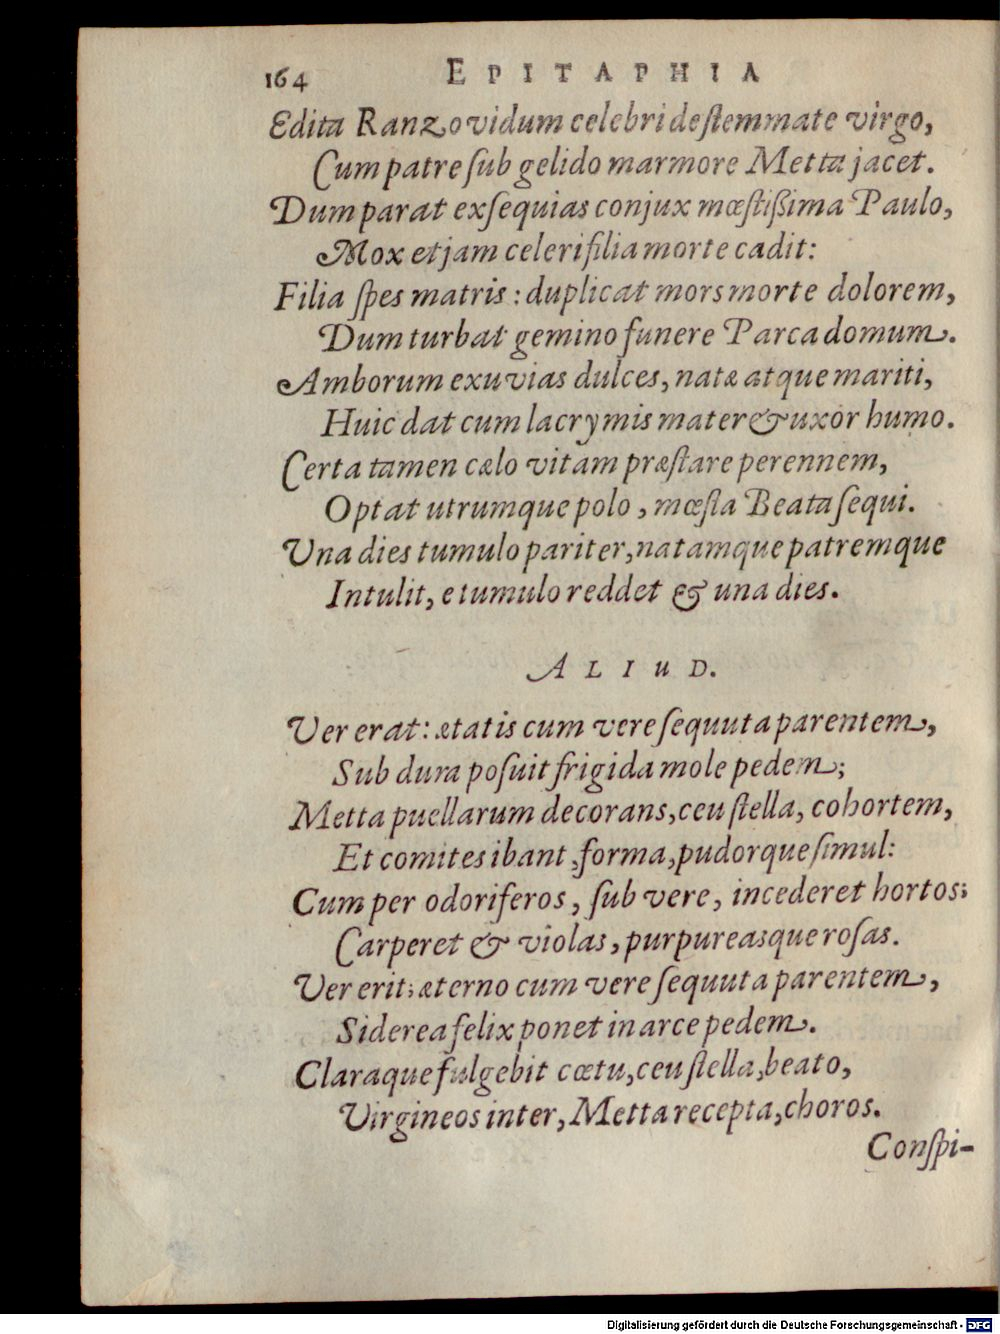 164 EPITAPHIA
Edita Ranzovidum celebri de ſtemmate virgo,
Cum patre ſub gelido marmore Metta jacet.
Dum parat exſequias conjux mœſtiſsima Paulo,
Mox etjam celeri filia morte cadit:
Filia ſpes matris: duplicat mors morte dolorem,
Dum turbat gemino funere Parca domum.
Amborum exuvias dulces, natæ atque mariti,
Huic dat cum lacrymis mater & uxor humo.
Certa tamen cælo vitam præſtare perennem,
Optat utrumque polo, mœſta Beata ſequi.
Una dies tumulo pariter, natamque patremque
Intulit, e tumulo reddet & una dies.
ALIUD.
Ver erat: ætatis cum vere ſequuta parentem,
Sub dura poſuit frigida mole pedem;
Metta puellarum decorans, ceu ſtella, cohortem,
Et comites ibant, forma, pudorque ſimul:
Cum per odoriferos, ſub vere, incederet hortos;
Carperet & violas, purpureasque roſas.
Ver erit; æterno cum vere ſequuta parentem,
Siderea felix ponet in arce pedem.
Claraque fulgebit cœtu, ceu ſtella, beato,
Virgineos inter, Metta recepta, choros.
Conſpi-
Digitalisierung gefördert durch die Deutsche Forschungsgemeinschaft - DFG